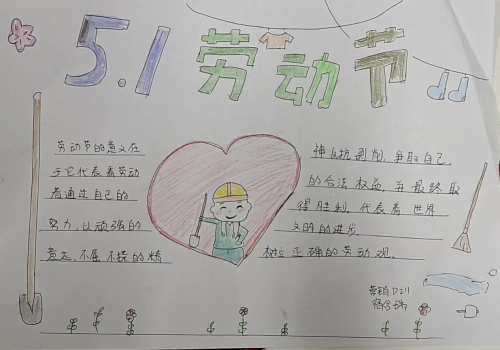 5.1 劳动节
劳动节的意义在
于它代表着劳动
者通过自己的
努力，以顽强的
意志，不屈不挠的精
神反抗剥削，争取自己
的合法权益，并最终取
得胜利，代表着世界
文明的进步
树立正确的劳动观。
D211